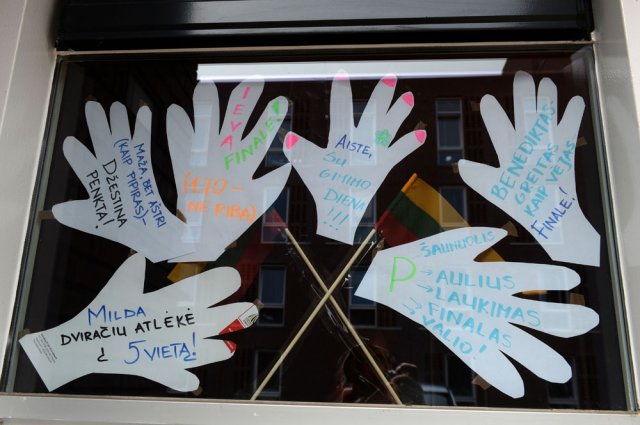 MAŽA, BET AŠTRI
(KAIP PIPIRAS)-
DŽESTINA
PENKTA!
IEVA
FINALE!
(170 -
NE RIBA)
AISTE,
SU
GIMIMO
DIENA
!!!
BENEDIKTAS-
GREITAS
KAIP VĖJAS
FINALE!
MILDA
DVIRAČIU ATLĖKĖ
Į 5 VIETĄ!
ŠAUNUOLIS
P → AULIUS
→ LAUKIMAS
→ FINALAS
→ VALIO!